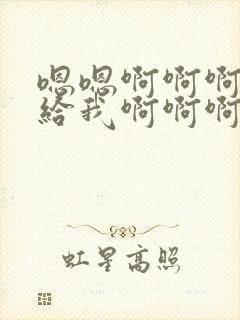 嗯嗯啊啊啊
给我啊啊啊
虹星高照